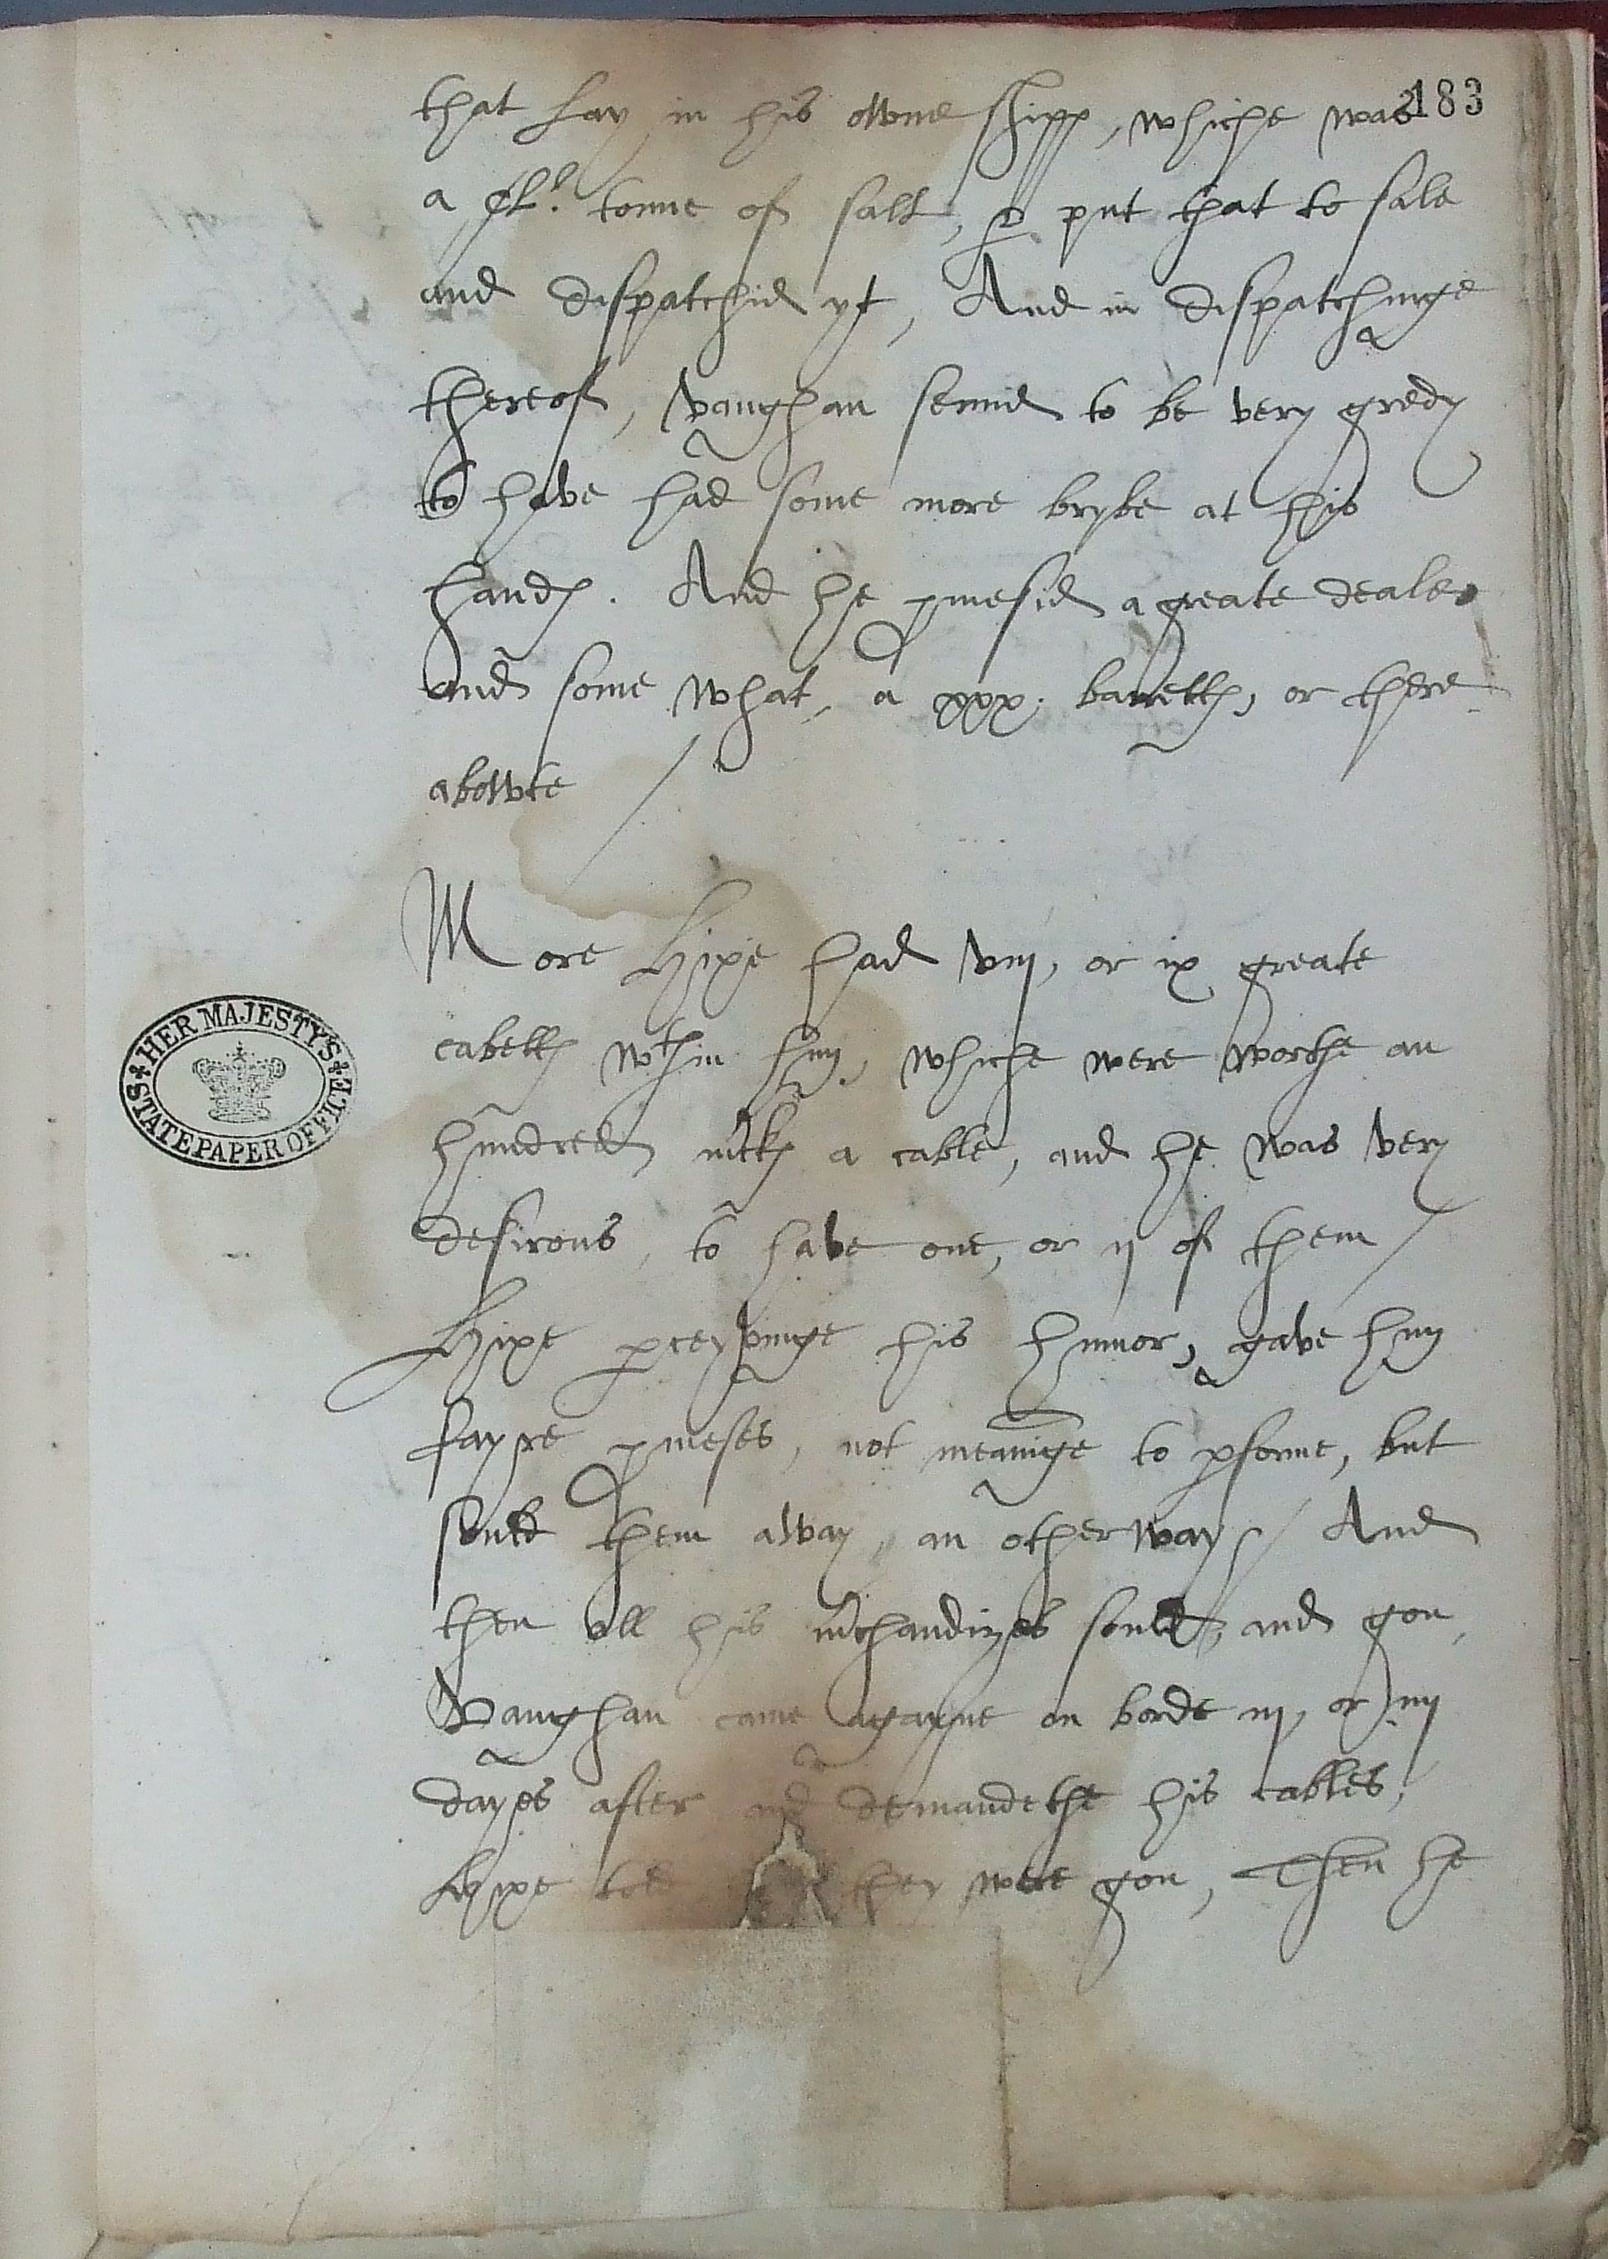 that lay in his owne shipp, whiche was
183
a tonne of salt, & put that to sale
and dispatchid yt, And in dispatchinge
thereof, Vaughan semid to be very gredy
to have had some more brybe at his
hands. And he pmesid a greate deale,
and some what, a xxx. barells, or there
abowte /
More Hixe had viij, or ix greate
cabells wthin hym, whiche were worthe an
hundred mrks a cable, and he was very
desirous, to have one, or ij of them /
Hixe pceyvinge his humor, gave hym
fayre pmeses, not meaninge to pforme, but
sould them away, an other way / And
then all his mchandizes sould, and gon,
Vaughan came agayne on borde iij, or iiij
dayes after and demandethe his cables,
Hixe told they were gon, Then he
HER MAJESTY'S
STATE PAPER OFFICE